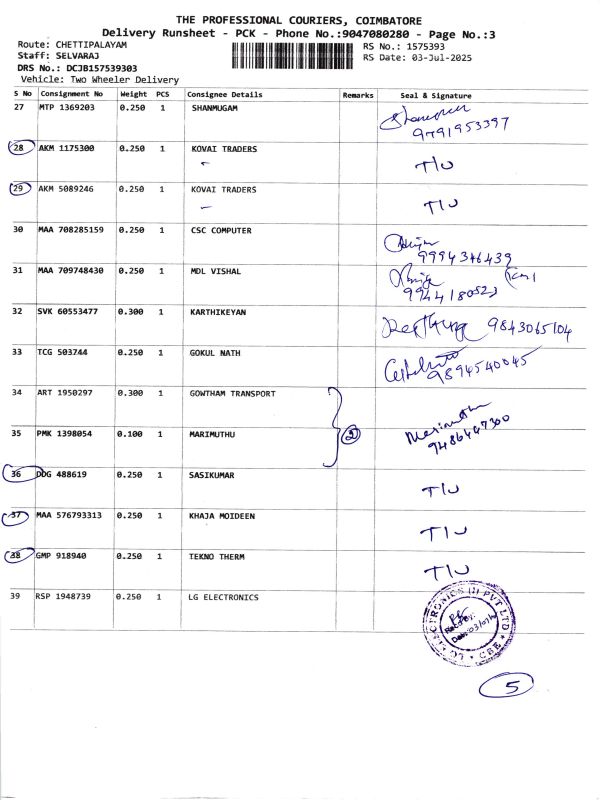 THE PROFESSIONAL COURIERS, COIMBATORE
Delivery Runsheet - PCK - Phone No.:9047080280 - Page No.:3
Route: CHETTIPALAYAM RS No.: 1575393
Staff: SELVARAJ RS Date: 03-Jul-2025
DRS No.: DCJB157539303
Vehicle: Two Wheeler Delivery
S No Consignment No Weight PCS Consignee Details Remarks Seal & Signature
27 MTP 1369203 0.250 1 SHANMUGAM
9791953397
28 AKM 1175300 0.250 1 KOVAI TRADERS T/U
29 AKM 5089246 0.250 1 KOVAI TRADERS T/U
30 MAA 708285159 0.250 1 CSC COMPUTER
9994346439
31 MAA 709748430 0.250 1 MDL VISHAL
9944180523
32 SVK 60553477 0.300 1 KARTHIKEYAN 9843065104
33 TCG 503744 0.250 1 GOKUL NATH
9894540045
34 ART 1950297 0.300 1 GOWTHAM TRANSPORT
35 PMK 1398054 0.100 1 MARIMUTHU 2 Marimuthu
9486447300
36 DDG 488619 0.250 1 SASIKUMAR T/U
37 MAA 576793313 0.250 1 KHAJA MOIDEEN T/U
38 GMP 918940 0.250 1 TEKNO THERM T/U
39 RSP 1948739 0.250 1 LG ELECTRONICS
LG ELECTRONICS (I) PVT LTD
CBE
5